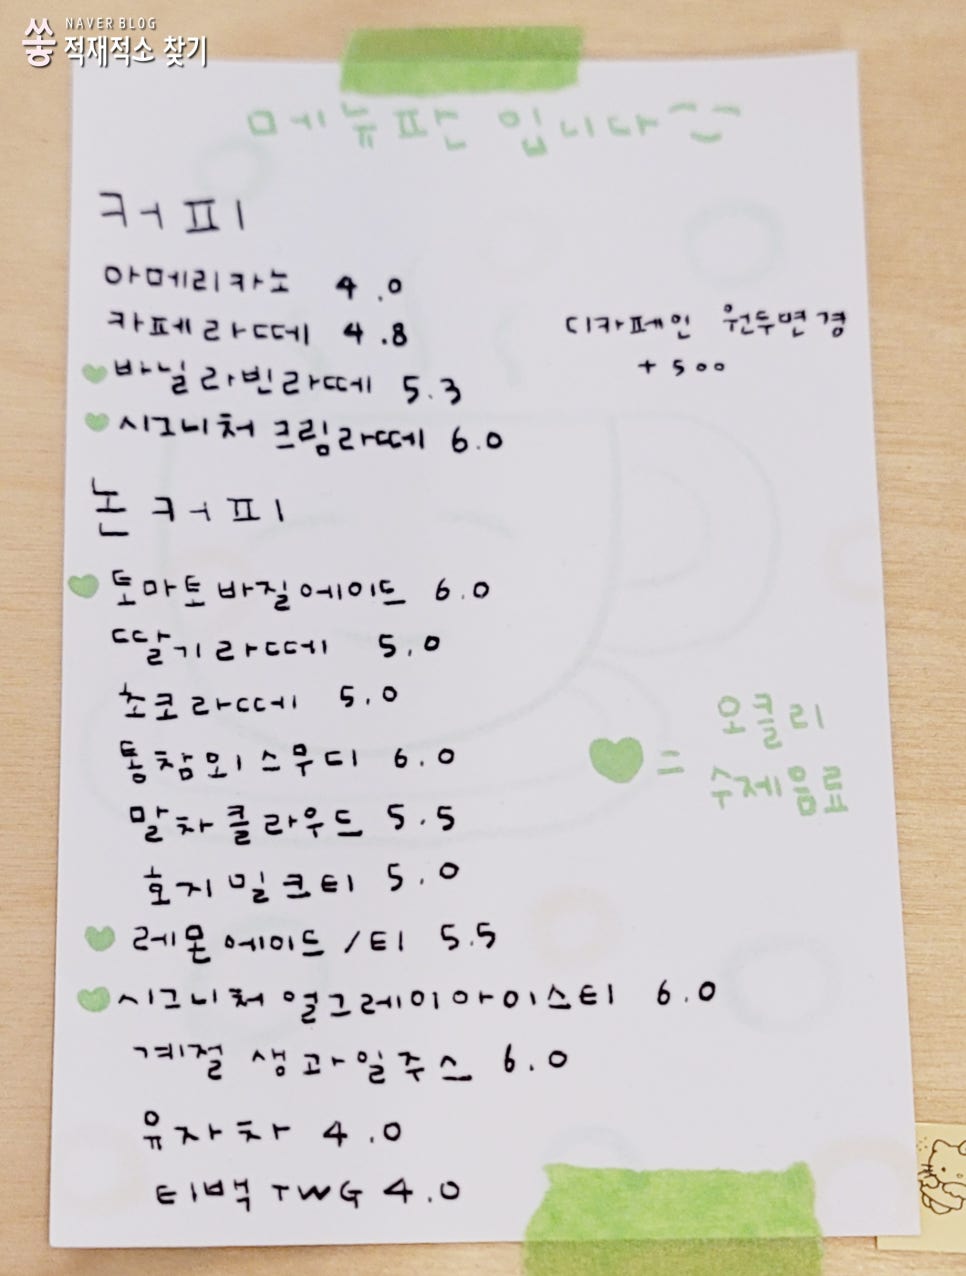 NAVER BLOG
쏭 적재적소 찾기
메뉴판 입니다
커피
아메리카노 4.0
카페라떼 4.8
디카페인 원두변경
+500
바닐라빈라떼 5.3
시그니처 크림라떼 6.0
논커피
토마토바질에이드 6.0
딸기라떼 5.0
초코라떼 5.0
통참외스무디 6.0
말차클라우드 5.5
호지밀크티 5.0
레몬에이드/티 5.5
시그니처 얼그레이아이스티 6.0
계절 생과일주스 6.0
유자차 4.0
티백 TWG 4.0
= 오클리
수제음료